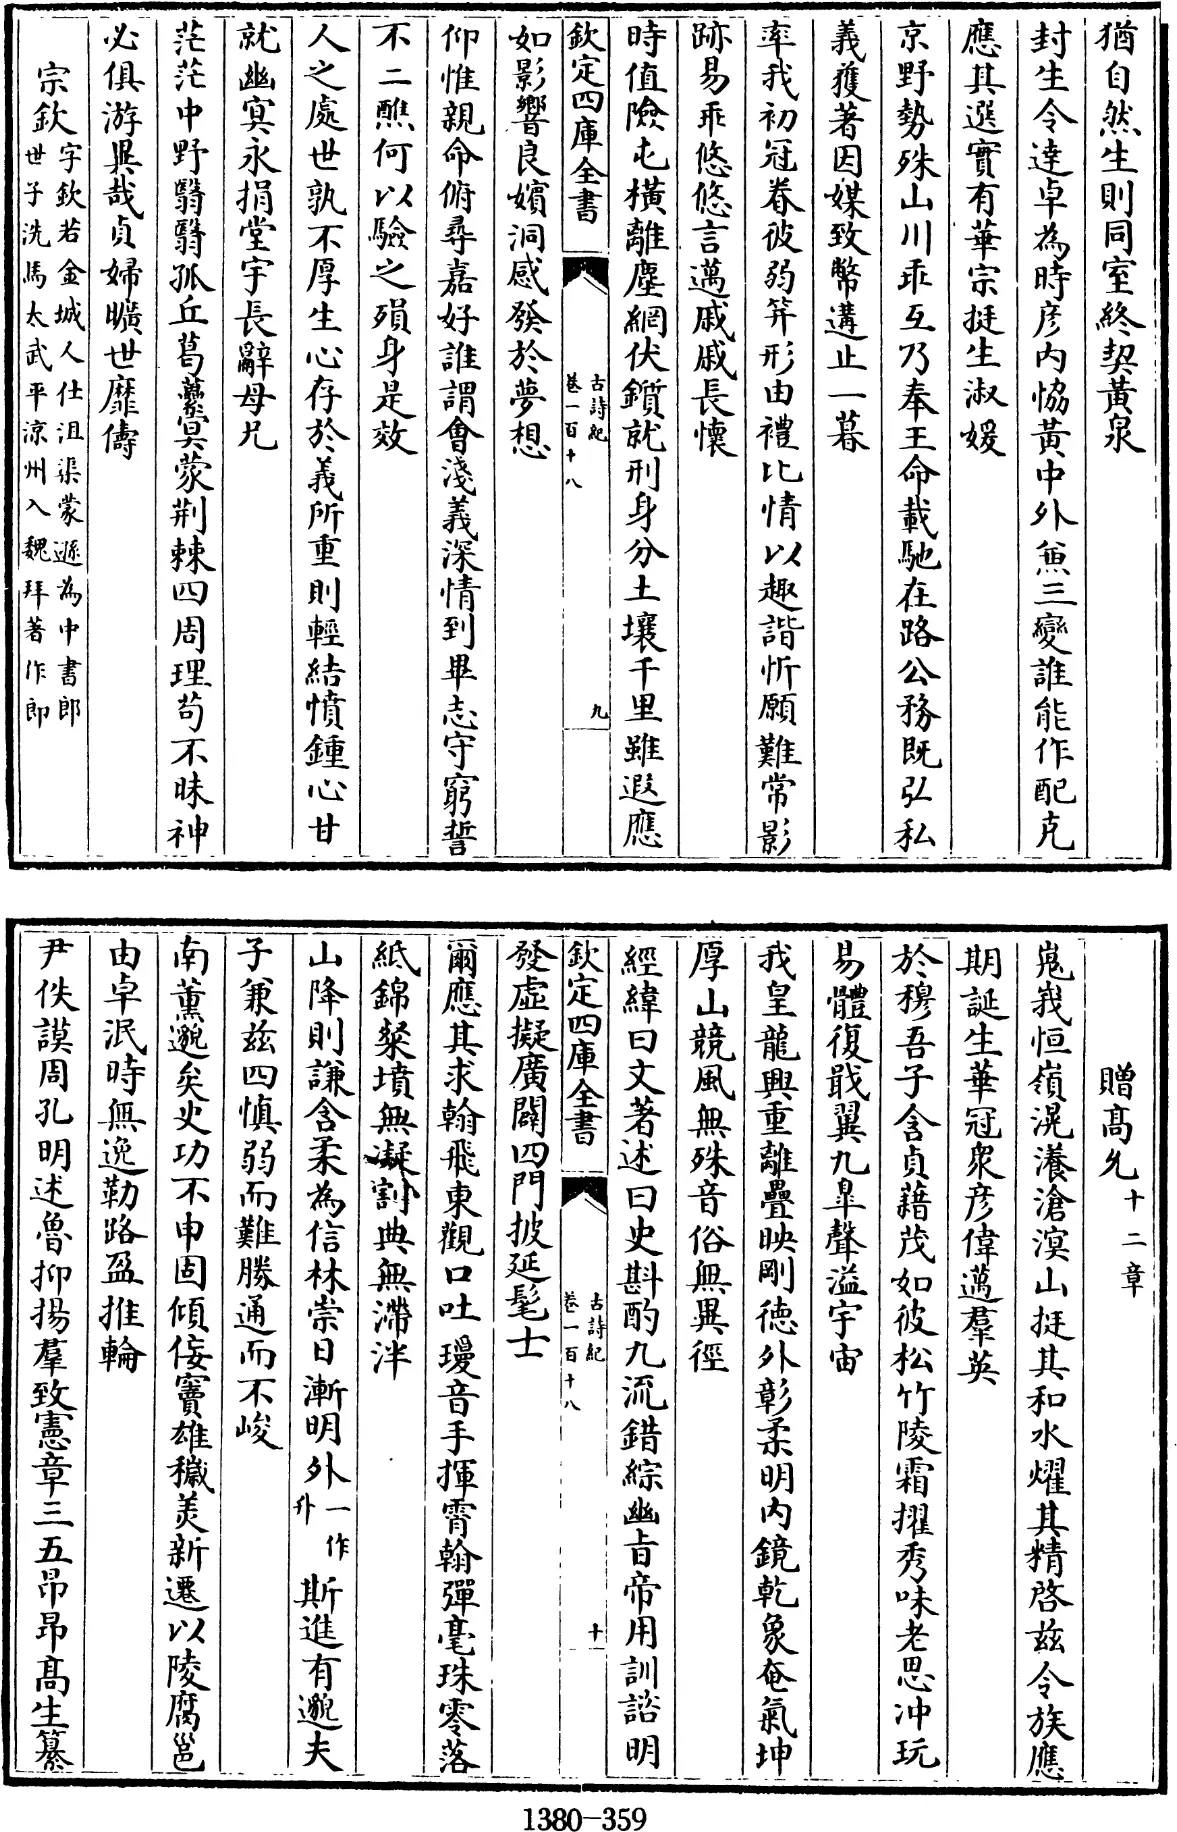 猶自然生則同室終契黃泉
封生令達卓為時彥内恊黃中外兼三變誰能作配克
應其選實有華宗挺生淑媛
京野勢殊山川乖互乃奉王命載馳在路公務既弘私
義獲著因媒致幣遘止一暮
率我初冠眷彼弱笄形由禮比情以趣諧忻願難常影
跡易乖悠悠言邁戚戚長懷
時值險屯橫離塵網伏鑕就刑身分土壤千里雖遐應
欽定四庫全書
古詩紀
卷一百十八
九
如影響良嬪洞感發於夢想
仰惟親命俯尋嘉好誰謂會淺義深情到畢志守窮誓
不二醮何以驗之殞身是效
人之處世孰不厚生心存於義所重則輕結憤鍾心甘
就幽冥永捐堂宇長辭母兄
茫茫中野翳翳孤丘葛虆冥蒙荆棘四周理苟不昧神
必俱游異哉貞婦曠世靡儔
宗欽字欽若金城人仕沮渠蒙遜為中書郎
世子洗馬太武平涼州入魏拜著作郎
贈髙允十二章
嵬峩恒嶺滉瀁滄溟山挺其和水燿其精啓茲令族應
期誕生華冠衆彥偉邁羣英
於穆吾子含貞藉茂如彼松竹陵霜擢秀味老思冲玩
易體復戢翼九臯聲溢宇宙
我皇龍興重離疊映剛徳外彰柔明内鏡乾象奄氣坤
厚山競風無殊音俗無異徑
經緯曰文著述曰史斟酌九流錯綜幽旨帝用訓諮明
欽定四庫全書
古詩紀
卷一百十八
十
發虛擬廣闢四門披延髦士
爾應其求翰飛東觀口吐瓊音手揮霄翰彈毫珠零落
紙錦粲墳無凝割典無滯泮
山降則謙含柔為信林崇日漸明外一作升斯進有邈夫
子兼茲四慎弱而難勝通而不峻
南董邈矣史功不申固傾佞竇雄穢美新遷以陵腐邕
由卓泯時無逸勒路盈推輪
尹佚謨周孔明述魯抑揚羣致憲章三五昂昂髙生纂
1380-359